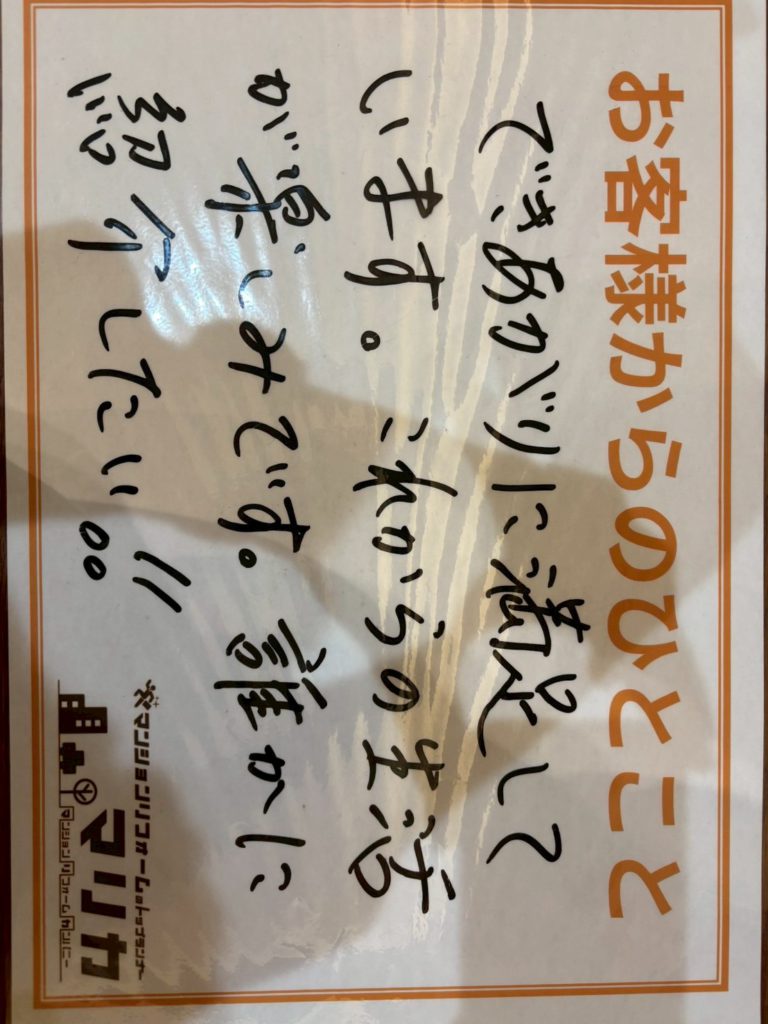 お客様からのひとこと
できあがりに満足して
います。これからの生活
が楽しみです。誰かに
紹介したい!!
マンションリフォームのトップランナー
マリカ
マンションリフォームカンパニー